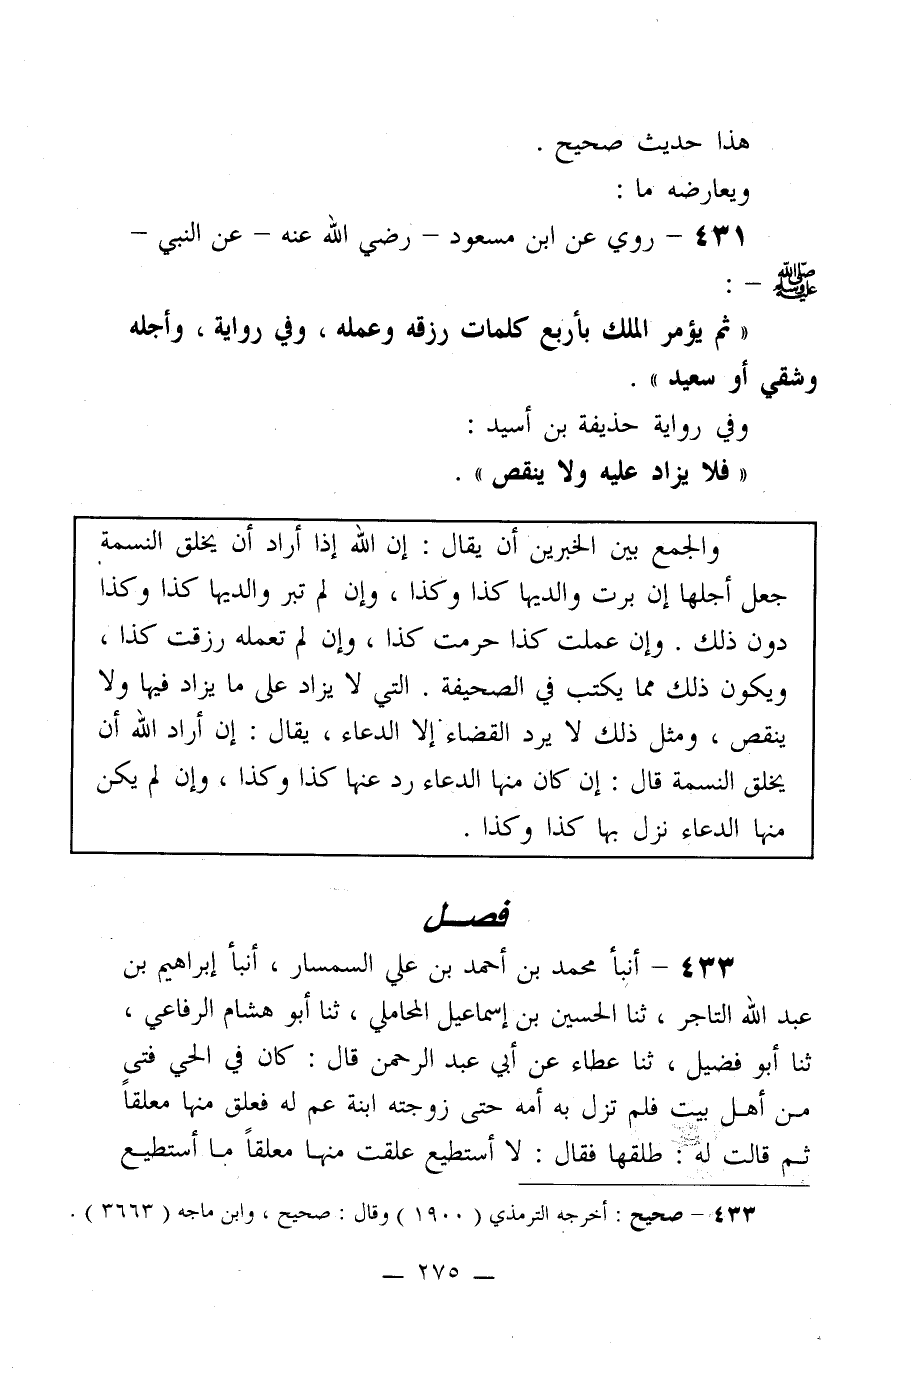 هذا حديث صحيح .
ويعارضه ما :
٤٣١ – روي عن ابن مسعود – رضي الله عنه – عن النبي –
ﷺ – :
« ثم يؤمر الملك بأربع كلمات رزقه وعمله ، وفي رواية ، وأجله
وشقي أو سعيد » .
وفي رواية حذيفة بن أسيد :
« فلا يزاد عليه ولا ينقص » .
والجمع بين الخبرين أن يقال : إن الله إذا أراد أن يخلق النسمة
جعل أجلها إن برت والديها كذا وكذا ، وإن لم تبر والديها كذا وكذا
دون ذلك . وإن عملت كذا حرمت كذا ، وإن لم تعمله رزقت كذا ،
ويكون ذلك مما يكتب في الصحيفة . التي لا يزاد على ما يزاد فيها ولا
ينقص ، ومثل ذلك لا يرد القضاء إلا الدعاء ، يقال : إن أراد الله أن
يخلق النسمة قال : إن كان منها الدعاء رد عنها كذا وكذا ، وإن لم يكن
منها الدعاء نزل بها كذا وكذا .
فصــل
٤٣٣ – أنبأ محمد بن أحمد بن علي السمسار ، أنبأ إبراهيم بن
عبد الله التاجر ، ثنا الحسين بن إسماعيل المحاملي ، ثنا أبو هشام الرفاعي ،
ثنا أبو فضيل ، ثنا عطاء عن أبي عبد الرحمن قال : كان في الحي فتىً
من أهل بيت فلم تزل به أمه حتى زوجته ابنة عم له فعلق منها معلقاً
ثم قالت له : طلقها فقال : لا أستطيع علقت منها معلقاً ما أستطيع
٤٣٣ – صحيح : أخرجه الترمذي ( ١٩٠٠ ) وقال : صحيح ، وابن ماجه ( ٣٦٦٣ ) .
— ٢٧٥ —